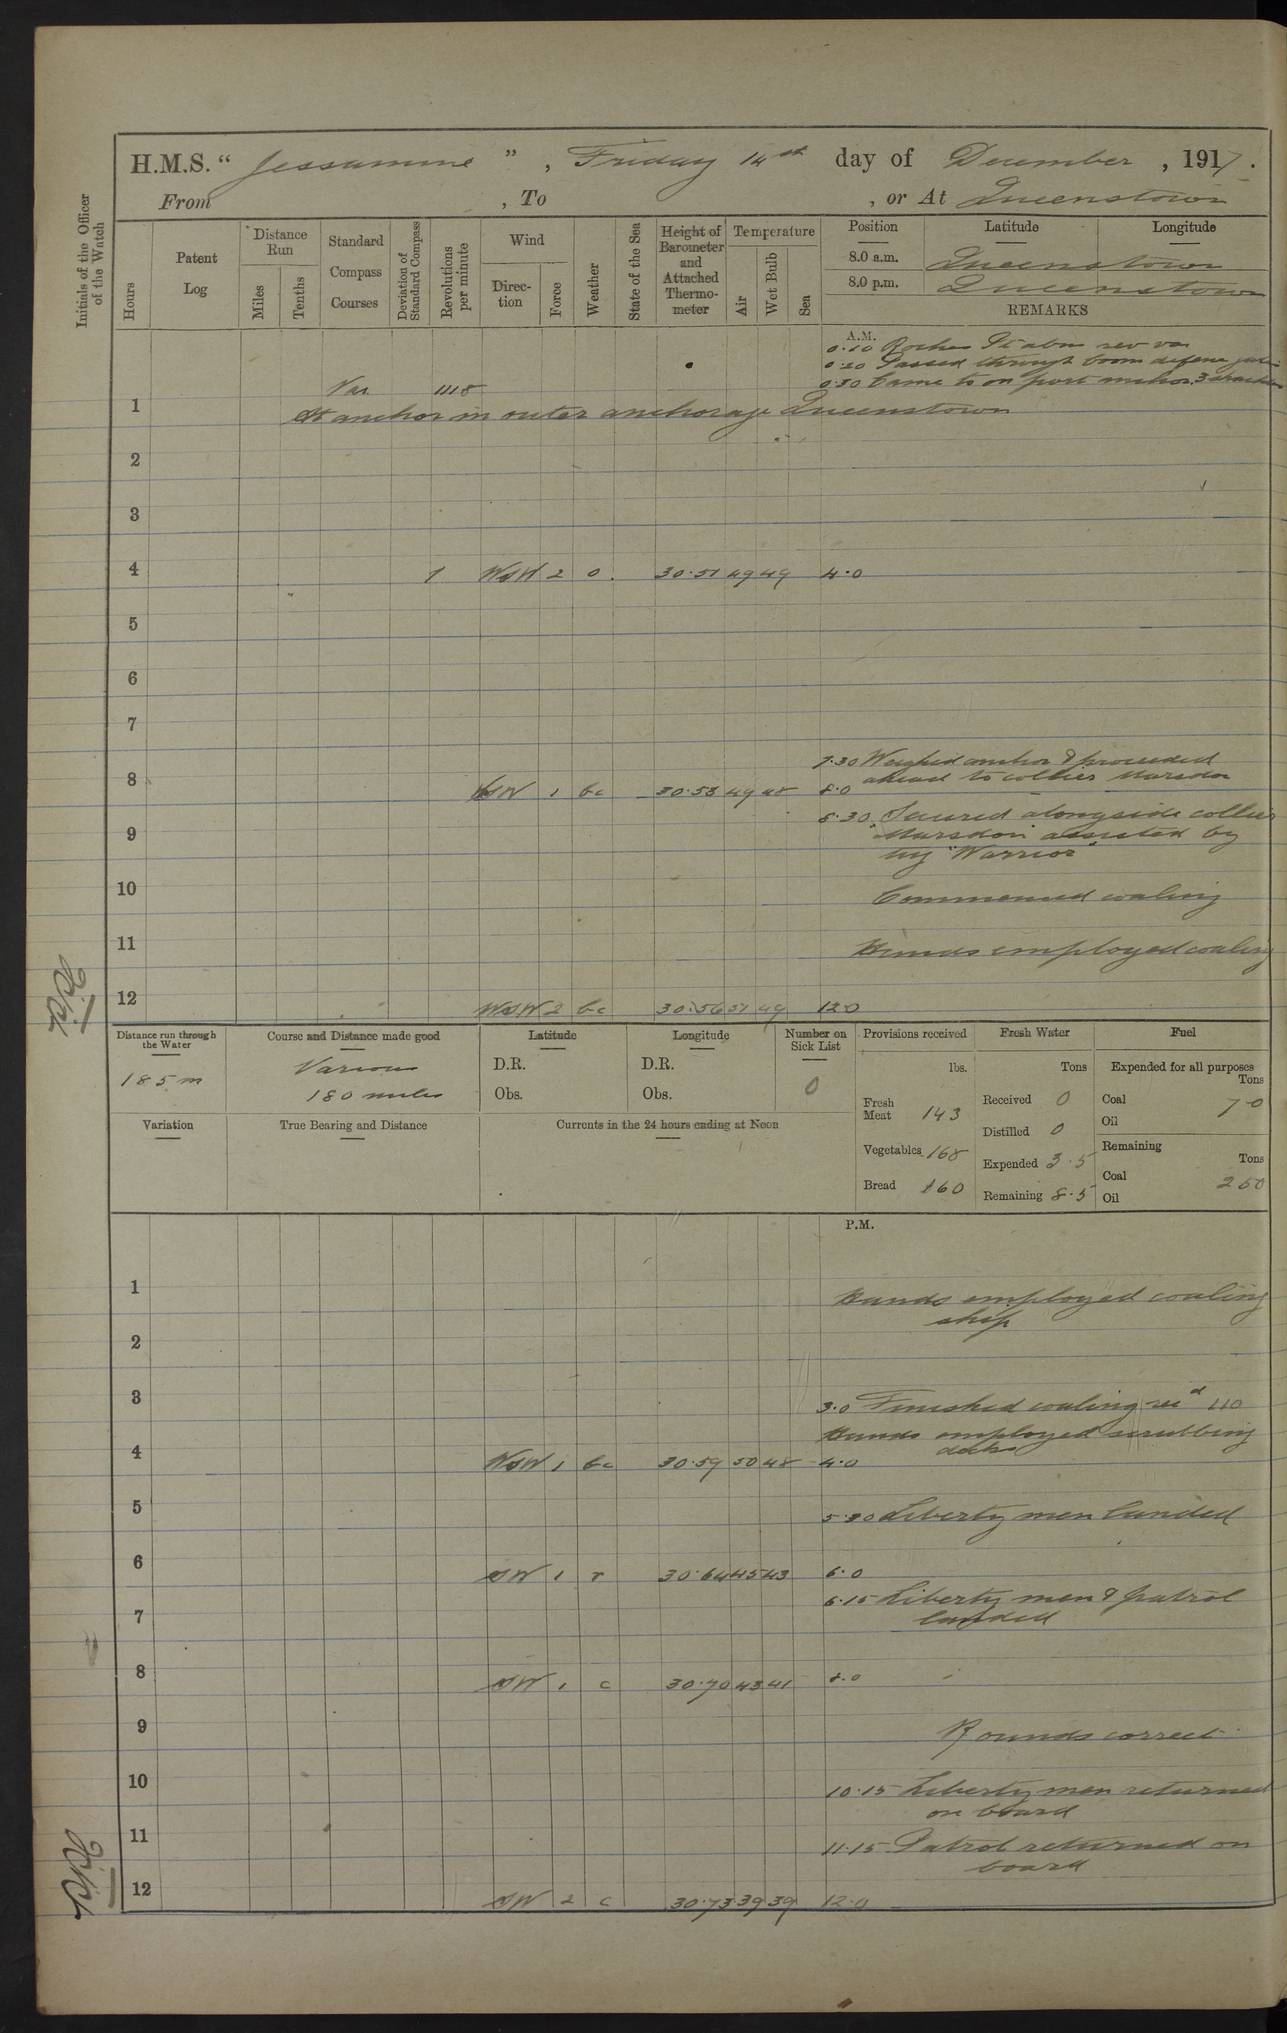 H.M.S. “ Jessamine ” , Friday 14th day of December , 1917 .
From , To , or At Queenstown
Initials of the Officer of the Watch
Hours
Patent Log
Distance Run
Miles
Tenths
Standard Compass Courses
Deviation of Standard Compass
Revolutions per minute
Wind
Direction
Force
Weather
State of the Sea
Height of Barometer and Attached Thermometer
Temperature
Air
Wet Bulb
Sea
Position Latitude Longitude
8.0 a.m. Queenstown
8.0 p.m. Queenstown
REMARKS
A.M.
0.10 Roches Pt abm
0.20 Passed through boom defence
Var. 1118 0.30 Came to on port anchor 3 shackles
1 At anchor in outer anchorage Queenstown
2
3
4 1 WSW 2 o. 30.51 49 49 4.0
5
6
7
7.30 Weighed anchor & proceeded
ahead to collier Marsdon
8 WSW 1 bc 30.53 49 48 8.0
8.30 Secured alongside collier
9 "Marsdon" assisted by
tug "Warrior"
10 Commenced coaling
11 Hands employed coaling
12 WSW 2 bc 30.56 51 49 12.0
Distance run through the Water
185 m
Course and Distance made good
Various
180 miles
Latitude
D.R.
Obs.
Longitude
D.R.
Obs.
Number on Sick List
0
Variation
True Bearing and Distance
Currents in the 24 hours ending at Noon
Provisions received
lbs.
Fresh Meat 143
Vegetables 168
Bread 160
Fresh Water
Tons
Received 0
Distilled 0
Expended 3.5
Remaining 8.5
Fuel
Expended for all purposes
Tons
Coal 70
Oil
Remaining
Tons
Coal 250
Oil
P.M.
1 Hands employed coaling
ship
2
3 3.0 Finished coaling recd 110
Hands employed scrubbing
decks
4 WSW 1 bc 30.59 50 48 4.0
5 5.30 Liberty men landed
6 SW 1 r 30.64 45 43 6.0
6.15 Liberty men & patrol
7 landed
8 SW 1 c 30.70 43 41 8.0
9 Rounds correct
10 10.15 Liberty men returned
on board
11 11.15 Patrol returned on
board
12 SW 2 c 30.73 39 39 12.0